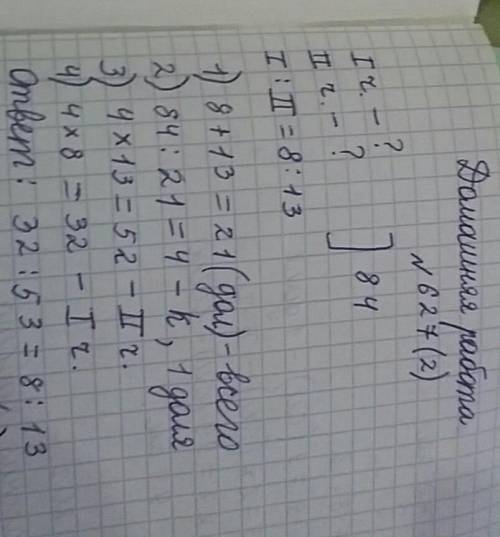 Домашняя работа
№ 627(2)
I ч. - ?
II ч. - ? ] 84
I : II = 8 : 13
1) 8 + 13 = 21 (дол) - всего
2) 84 : 21 = 4 - k, 1 доля
3) 4 × 13 = 52 - II ч.
4) 4 × 8 = 32 - I ч.
Ответ: 32 : 53 = 8 : 13